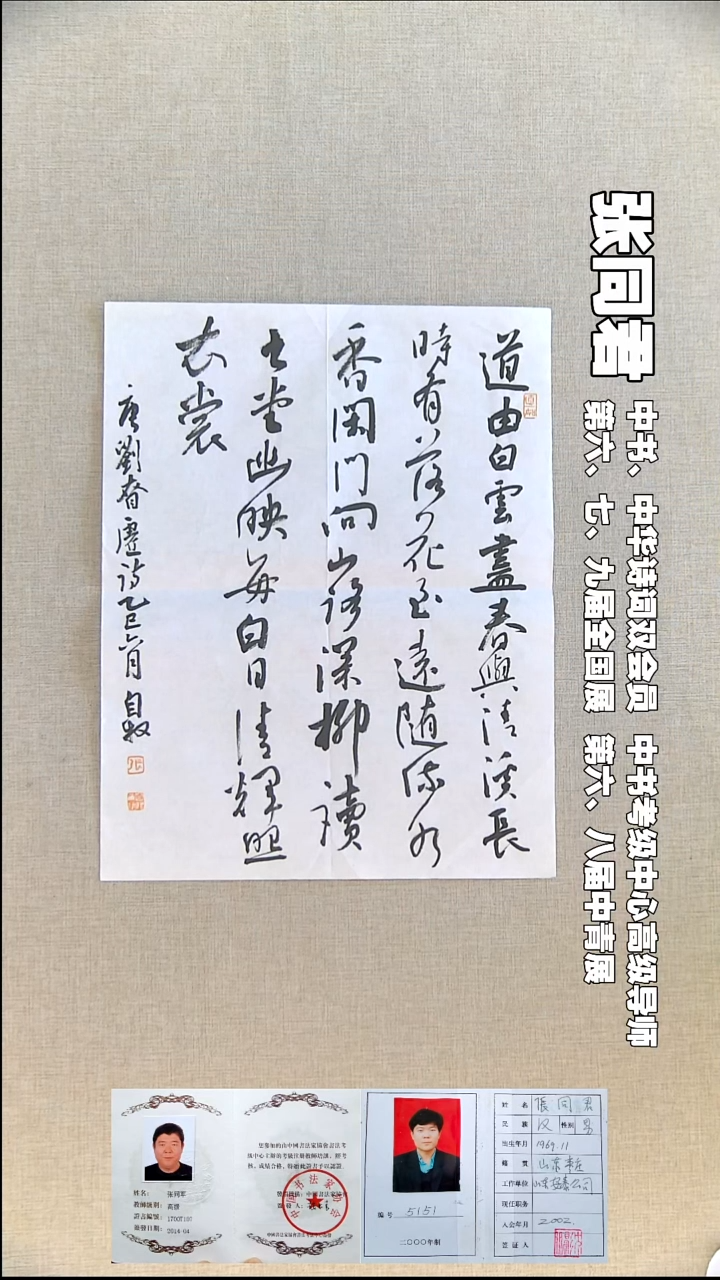 道由白雲盡春與清溪長
時有落花至遠隨流水
香閑門向山路深柳讀
書堂幽映每白日清輝照
衣裳
唐劉眘虛詩乙巳六月自牧
张同君
中书、中华诗词双会员 中书考级中心高级导师
第六、七、九届全国展 第六、八届中青展
姓名:
教師級別: 高級
證書編號:
頒發日期: 2014-04
中国书法家协会
編號 5151
二〇〇〇年制
姓名 張同君
民族 汉 性别 男
出生年月 1969.11
籍貫 山东枣庄
工作單位
現任职务
入会年月 2002.
簽证人